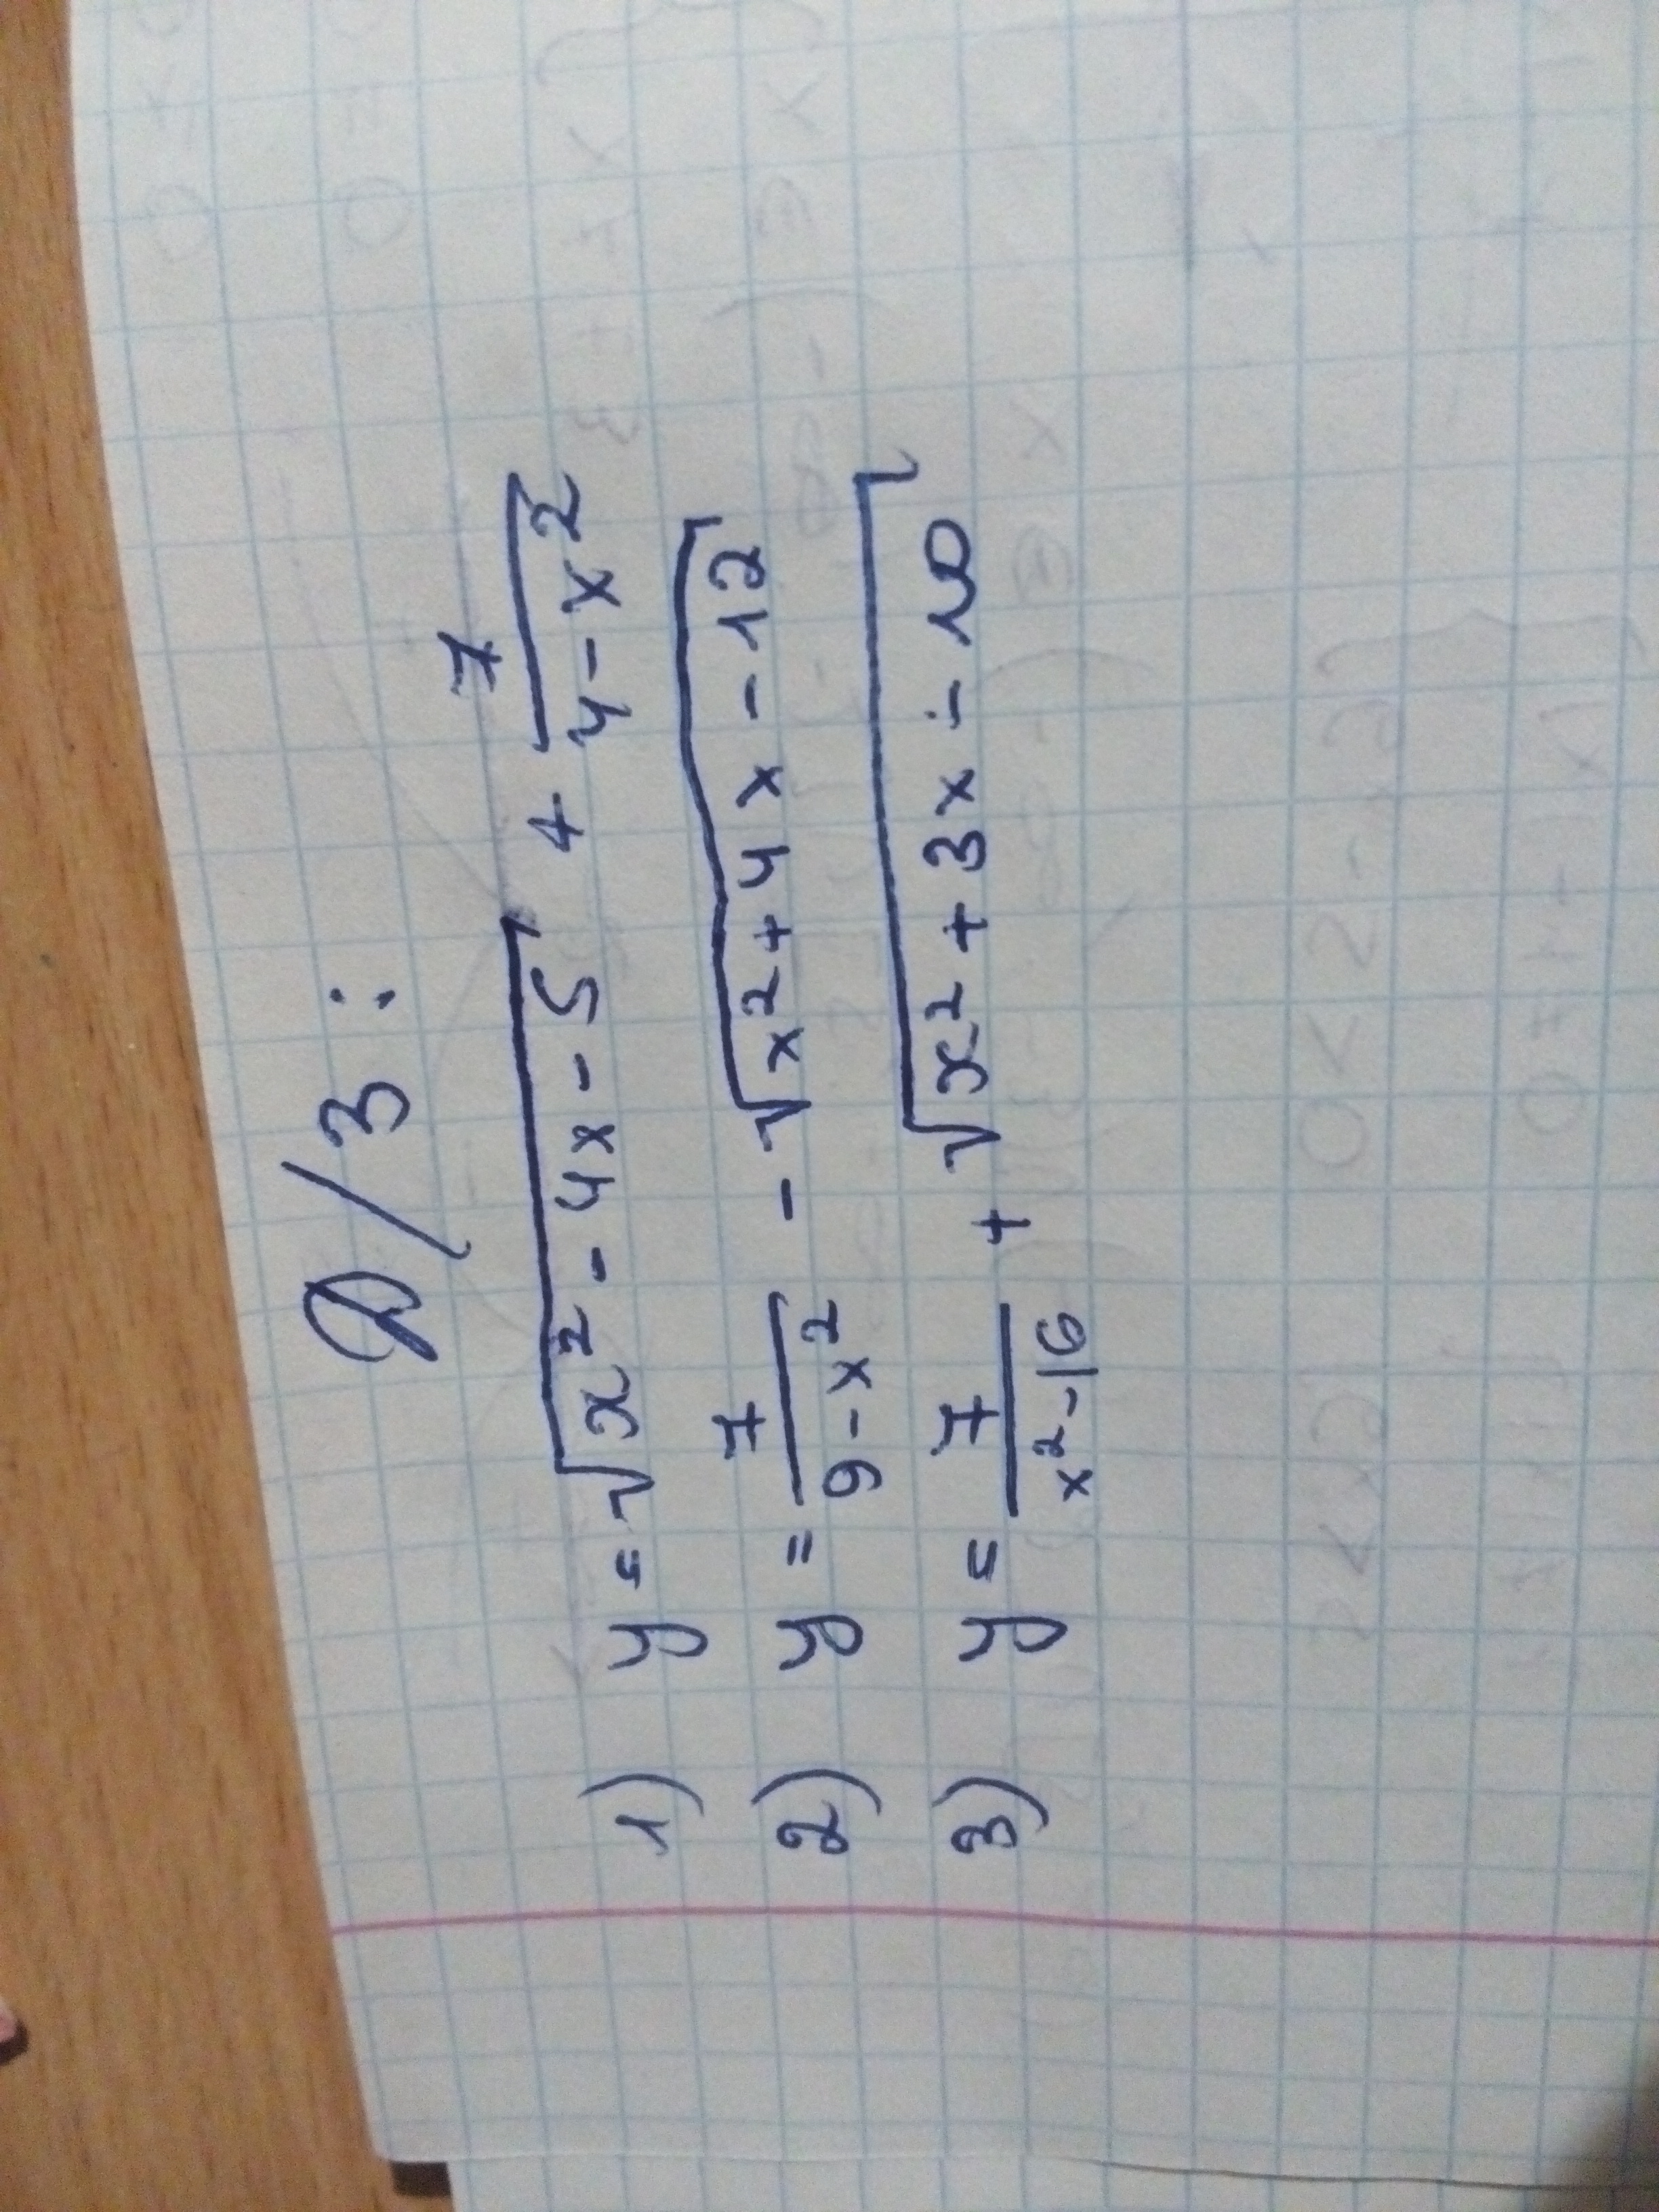 Д/З:
1) y = √(x² - 4x - 5) + 7/(4 - x²)
2) y = 7/(9 - x²) - √(x² + 4x - 12)
3) y = 7/(x² - 16) + √(x² + 3x - 10)